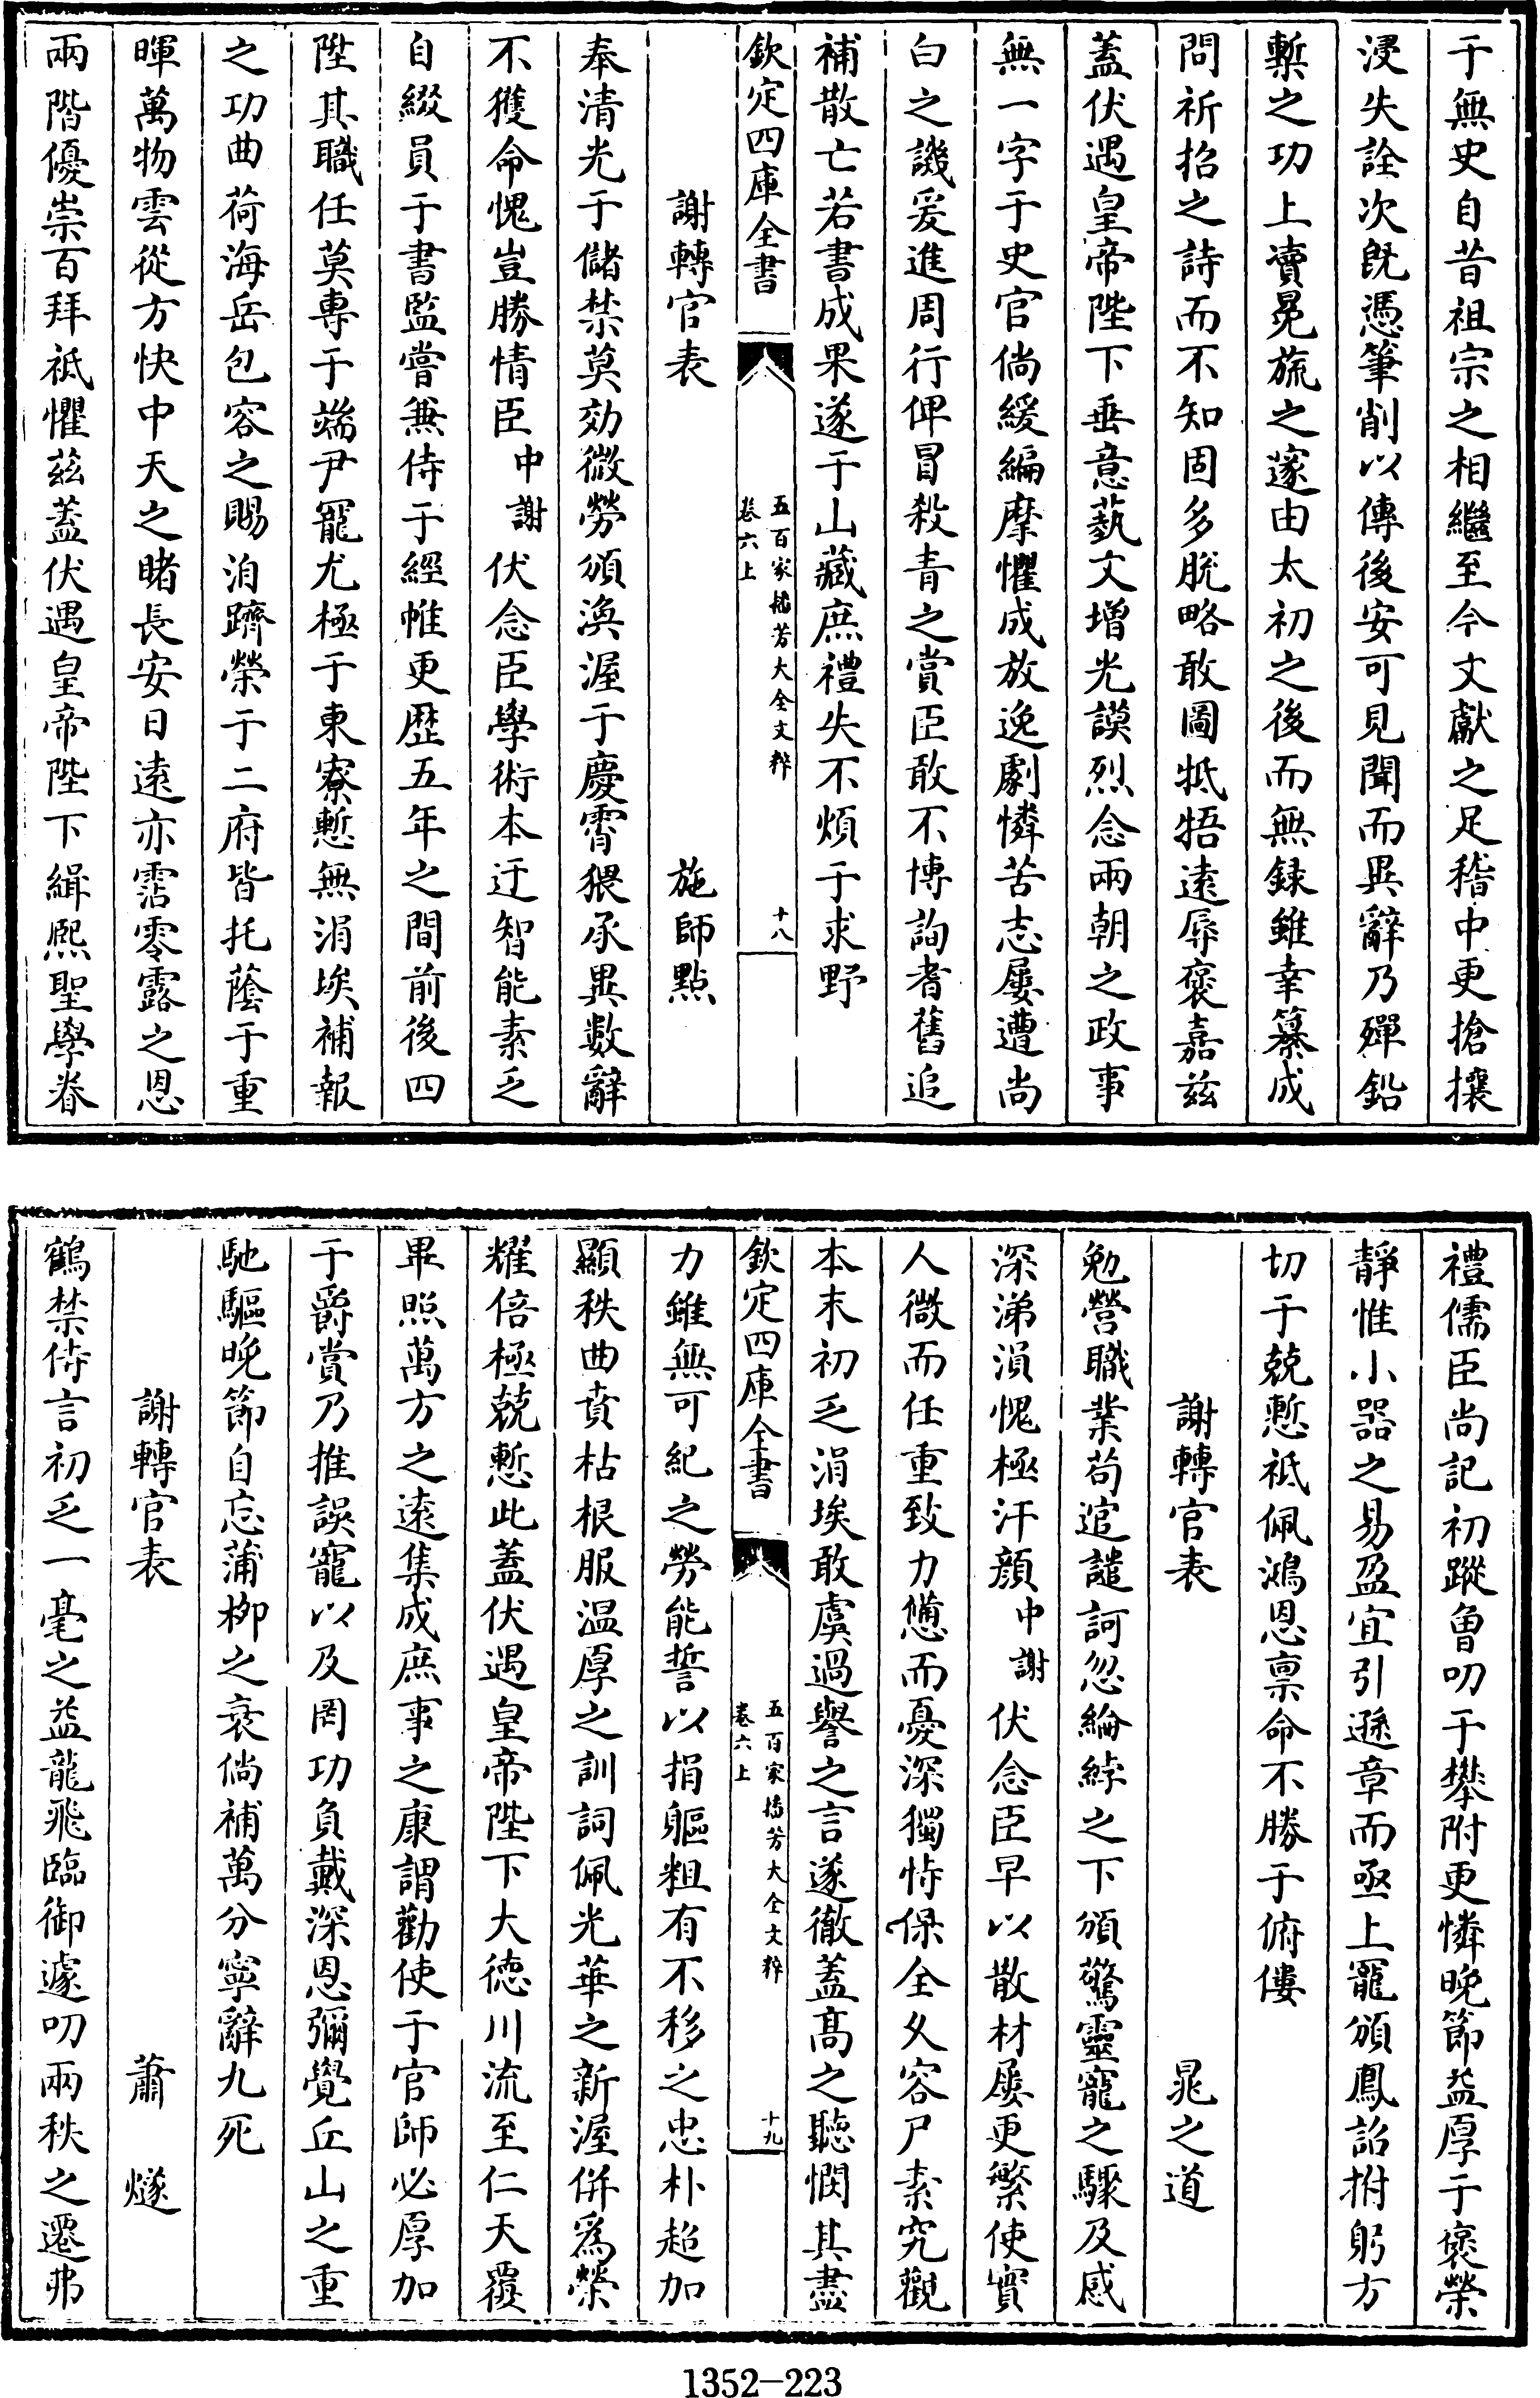 于無史自昔祖宗之相繼至今文獻之足稽中更搶攘
浸失詮次既憑筆削以傳後安可見聞而異辭乃殫鉛
槧之功上瀆冕旒之邃由太初之後而無録雖幸纂成
問祈招之詩而不知固多脫略敢圖牴牾遠辱褒嘉兹
蓋伏遇皇帝陛下垂意藝文增光謨烈念兩朝之政事
無一字于史官倘緩編摩懼成放逸劇憐苦志屢遭尚
白之譏爰進周行俾冒殺青之賞臣敢不博詢耆舊追
補散亡若書成果遂于山藏庶禮失不煩于求野
欽定四庫全書
五百家播芳大全文粹
卷六上
十八
謝轉官表 施師點
奉清光于儲禁莫効微勞頒渙渥于慶霄猥承異數辭
不獲命愧豈勝情臣中謝伏念臣學術本迂智能素乏
自綴員于書監嘗兼侍于經帷更歷五年之間前後四
陞其職任莫專于端尹寵尤極于東寮慙無涓埃補報
之功曲荷海岳包容之賜洎躋榮于二府皆托蔭于重
暉萬物雲從方快中天之睹長安日遠亦霑零露之恩
兩階優崇百拜祗懼茲蓋伏遇皇帝陛下緝熙聖學眷
禮儒臣尚記初蹤曾叨于攀附更憐晚節益厚于褒榮
靜惟小器之易盈宜引遜章而亟上寵頒鳳詔拊躬方
切于兢慙祗佩鴻恩禀命不勝于俯僂
謝轉官表 晁之道
勉營職業苟逭譴訶忽綸綍之下頒驚靈寵之驟及感
深涕湏愧極汗顔中謝伏念臣早以散材屢更繁使實
人微而任重致力憊而憂深獨恃保全久容尸素究觀
本末初乏涓埃敢虞過譽之言遂徹蓋高之聽憫其盡
欽定四庫全書
五百家播芳大全文粹
卷六上
十九
力雖無可紀之勞能誓以捐軀粗有不移之忠朴超加
顯秩曲賁枯根服温厚之訓詞佩光華之新渥併爲榮
耀倍極兢慙此蓋伏遇皇帝陛下大德川流至仁天覆
畢照萬方之遠集成庶事之康謂勸使于官師必厚加
于爵賞乃推誤寵以及罔功負戴深恩彌覺丘山之重
馳驅晚節自忘蒲柳之衰倘補萬分寧辭九死
謝轉官表 蕭燧
鶴禁侍言初乏一毫之益龍飛臨御遽叨兩秩之遷弗
1352-223